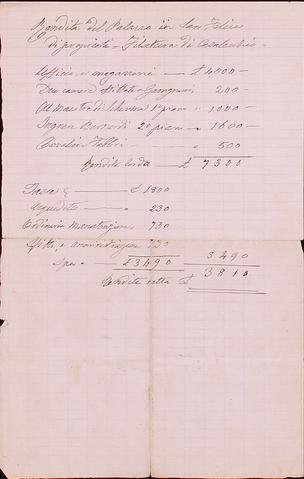 Rendita del Palazzo in San Felice
di proprietà - Filatura di Casalecchio -
Uffici e magazzeni - £ 4000 -
Due camere affittate Garagnani 200 -
Al Maestro di Scherma 1º piano " 1000 -
Ingner Bernardi 2º piano " 1600 -
Fabbri - " 500
Rendita lorda £ 7300
Tasse - £ 1800
Acquedotto - " 230
Ordinaria Manutenzione 730
Sfitti e amministrazione 730
Spese - £ 3490 3490
Rendita netta £ 3810